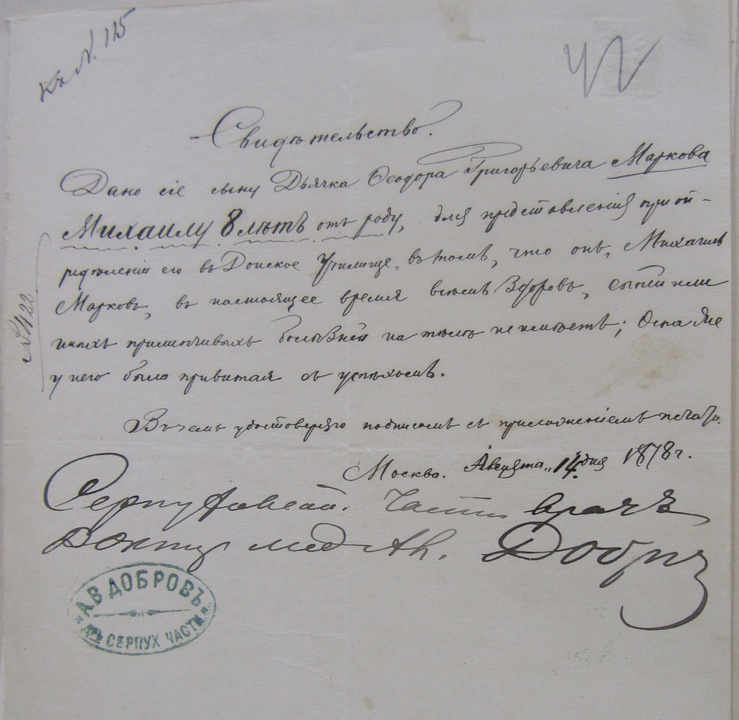 Къ №. 115
Свидѣтельство.
Дано сіе сыну Дьячка Ѳеодора Григорьевича Маркова
Михаилу 8 лѣтъ отъ роду, для представленія при о-
редѣленіи его въ Донское Училище, въ томъ, что онъ, Михаилъ
Марковъ, въ настоящее время весьма здоровъ, сыпи или
иныхъ прилипчивыхъ болѣзней на тѣлѣ не имѣетъ; Оспа же
у него была привита съ успѣхомъ.
Въ чемъ удостовѣряю подписомъ съ приложеніемъ печати.
Москва. Августа „14" дня 1878 г.
Серпуховской. Части врачъ
Докторъ мед. А.В. Добровъ
№ 422
А.В ДОБРОВЪ
ДРЪ СЕРПУХ ЧАСТИ